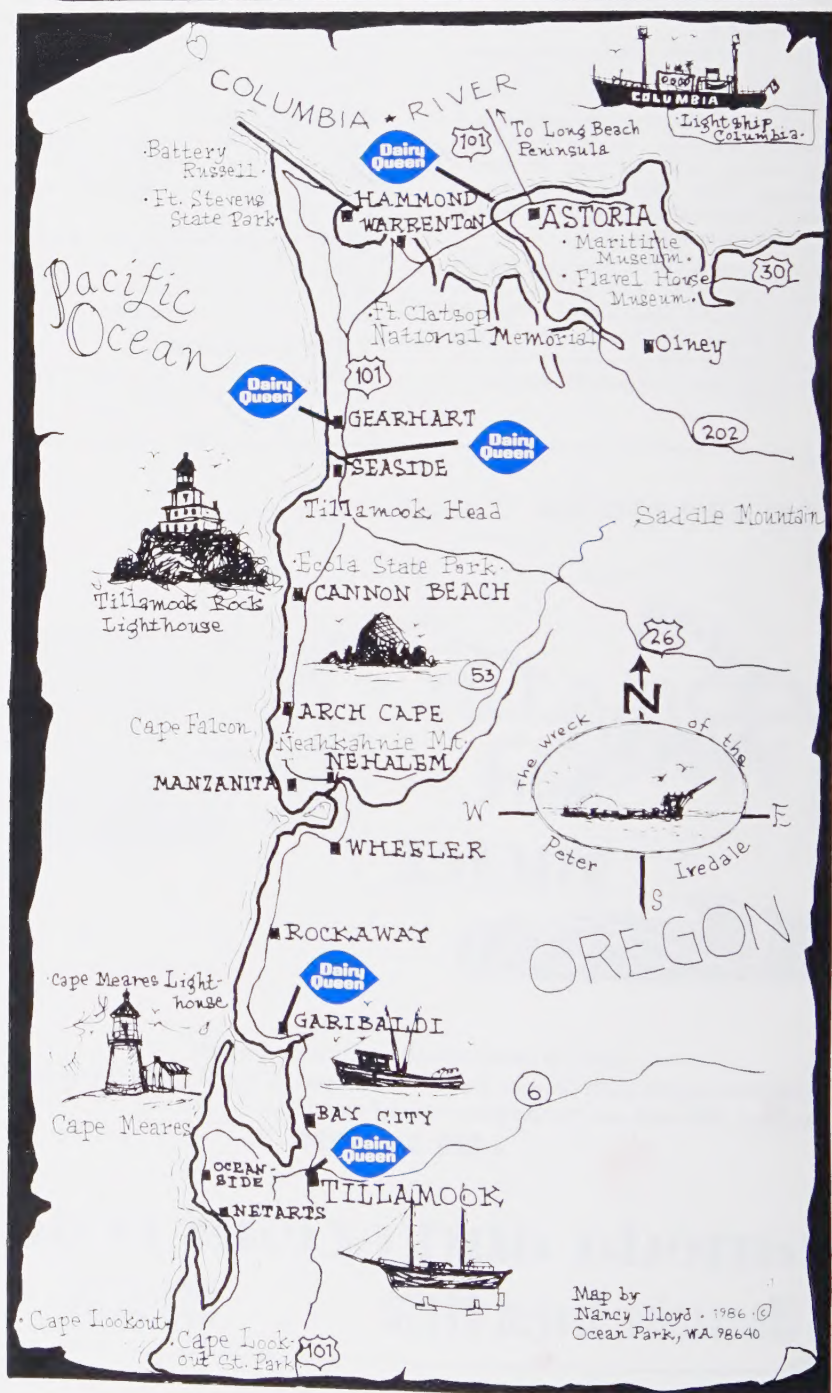 COLUMBIA ★ RIVER
COLUMBIA
·Lightship
Columbia·
101
To Long Beach
Peninsula
Dairy
Queen
·Battery
Russell·
·Ft. Stevens
State Park·
HAMMOND
WARRENTON
ASTORIA
· Maritime
Museum ·
· Flavel House
Museum ·
30
Pacific
Ocean
·Ft. Clatsop
National Memorial
Olney
101
Dairy
Queen
GEARHART
202
Dairy
Queen
SEASIDE
Tillamook Head
Saddle Mountain
·Ecola State Park·
Tillamook Rock
Lighthouse
CANNON BEACH
26
53
N
ARCH CAPE
Cape Falcon
Neahkahnie Mt.
NEHALEM
MANZANITA
The Wreck of the
W
E
Peter Iredale
S
WHEELER
OREGON
ROCKAWAY
·Cape Meares Light-
house
Dairy
Queen
GARIBALDI
6
BAY CITY
Cape Meares
Dairy
Queen
OCEAN-
SIDE
TILLAMOOK
NETARTS
Map by
Nancy Lloyd · 1986 ·©
Ocean Park, WA 98640
· Cape Lookout
· Cape Look-
out St. Park
101